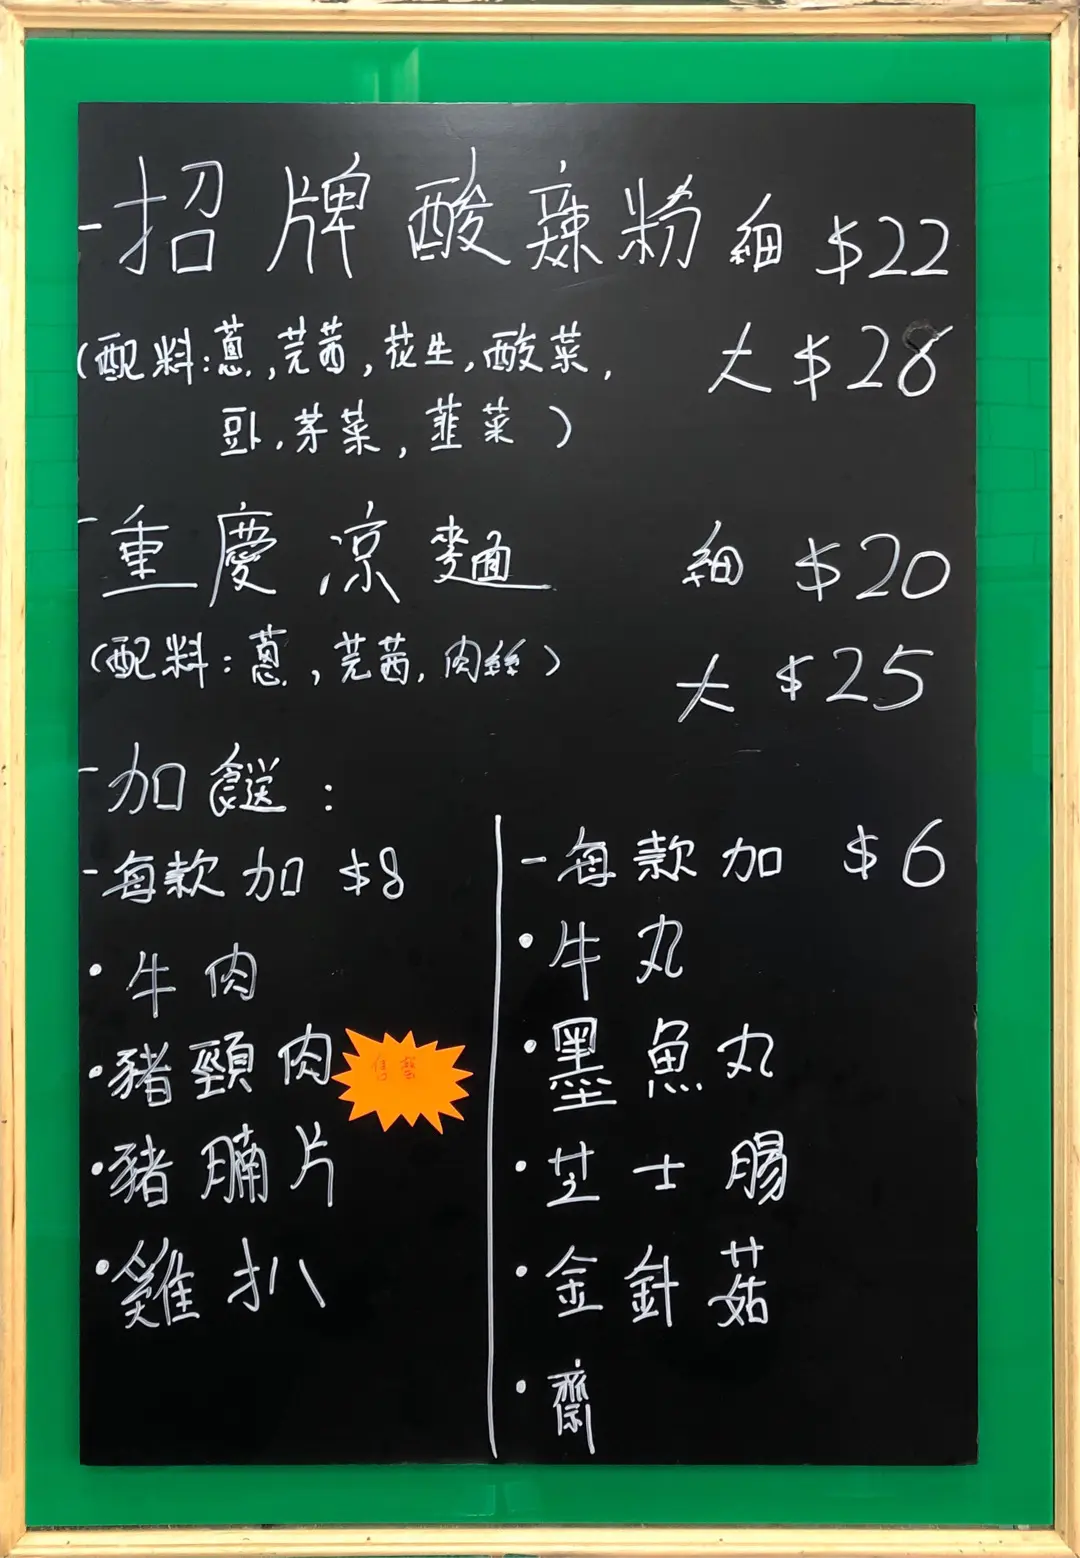 - 招牌酸辣粉 細 $22
(配料:蔥,芫茜,花生,酸菜, 大 $28
豆卜,芽菜,韮菜)
- 重慶凉麵 細 $20
(配料:蔥,芫茜,肉絲) 大 $25
- 加餸:
- 每款加 $8
• 牛肉
• 豬頸肉 售罄
• 豬腩片
• 雞扒
- 每款加 $6
• 牛丸
• 墨魚丸
• 芝士腸
• 金針菇
• 齋